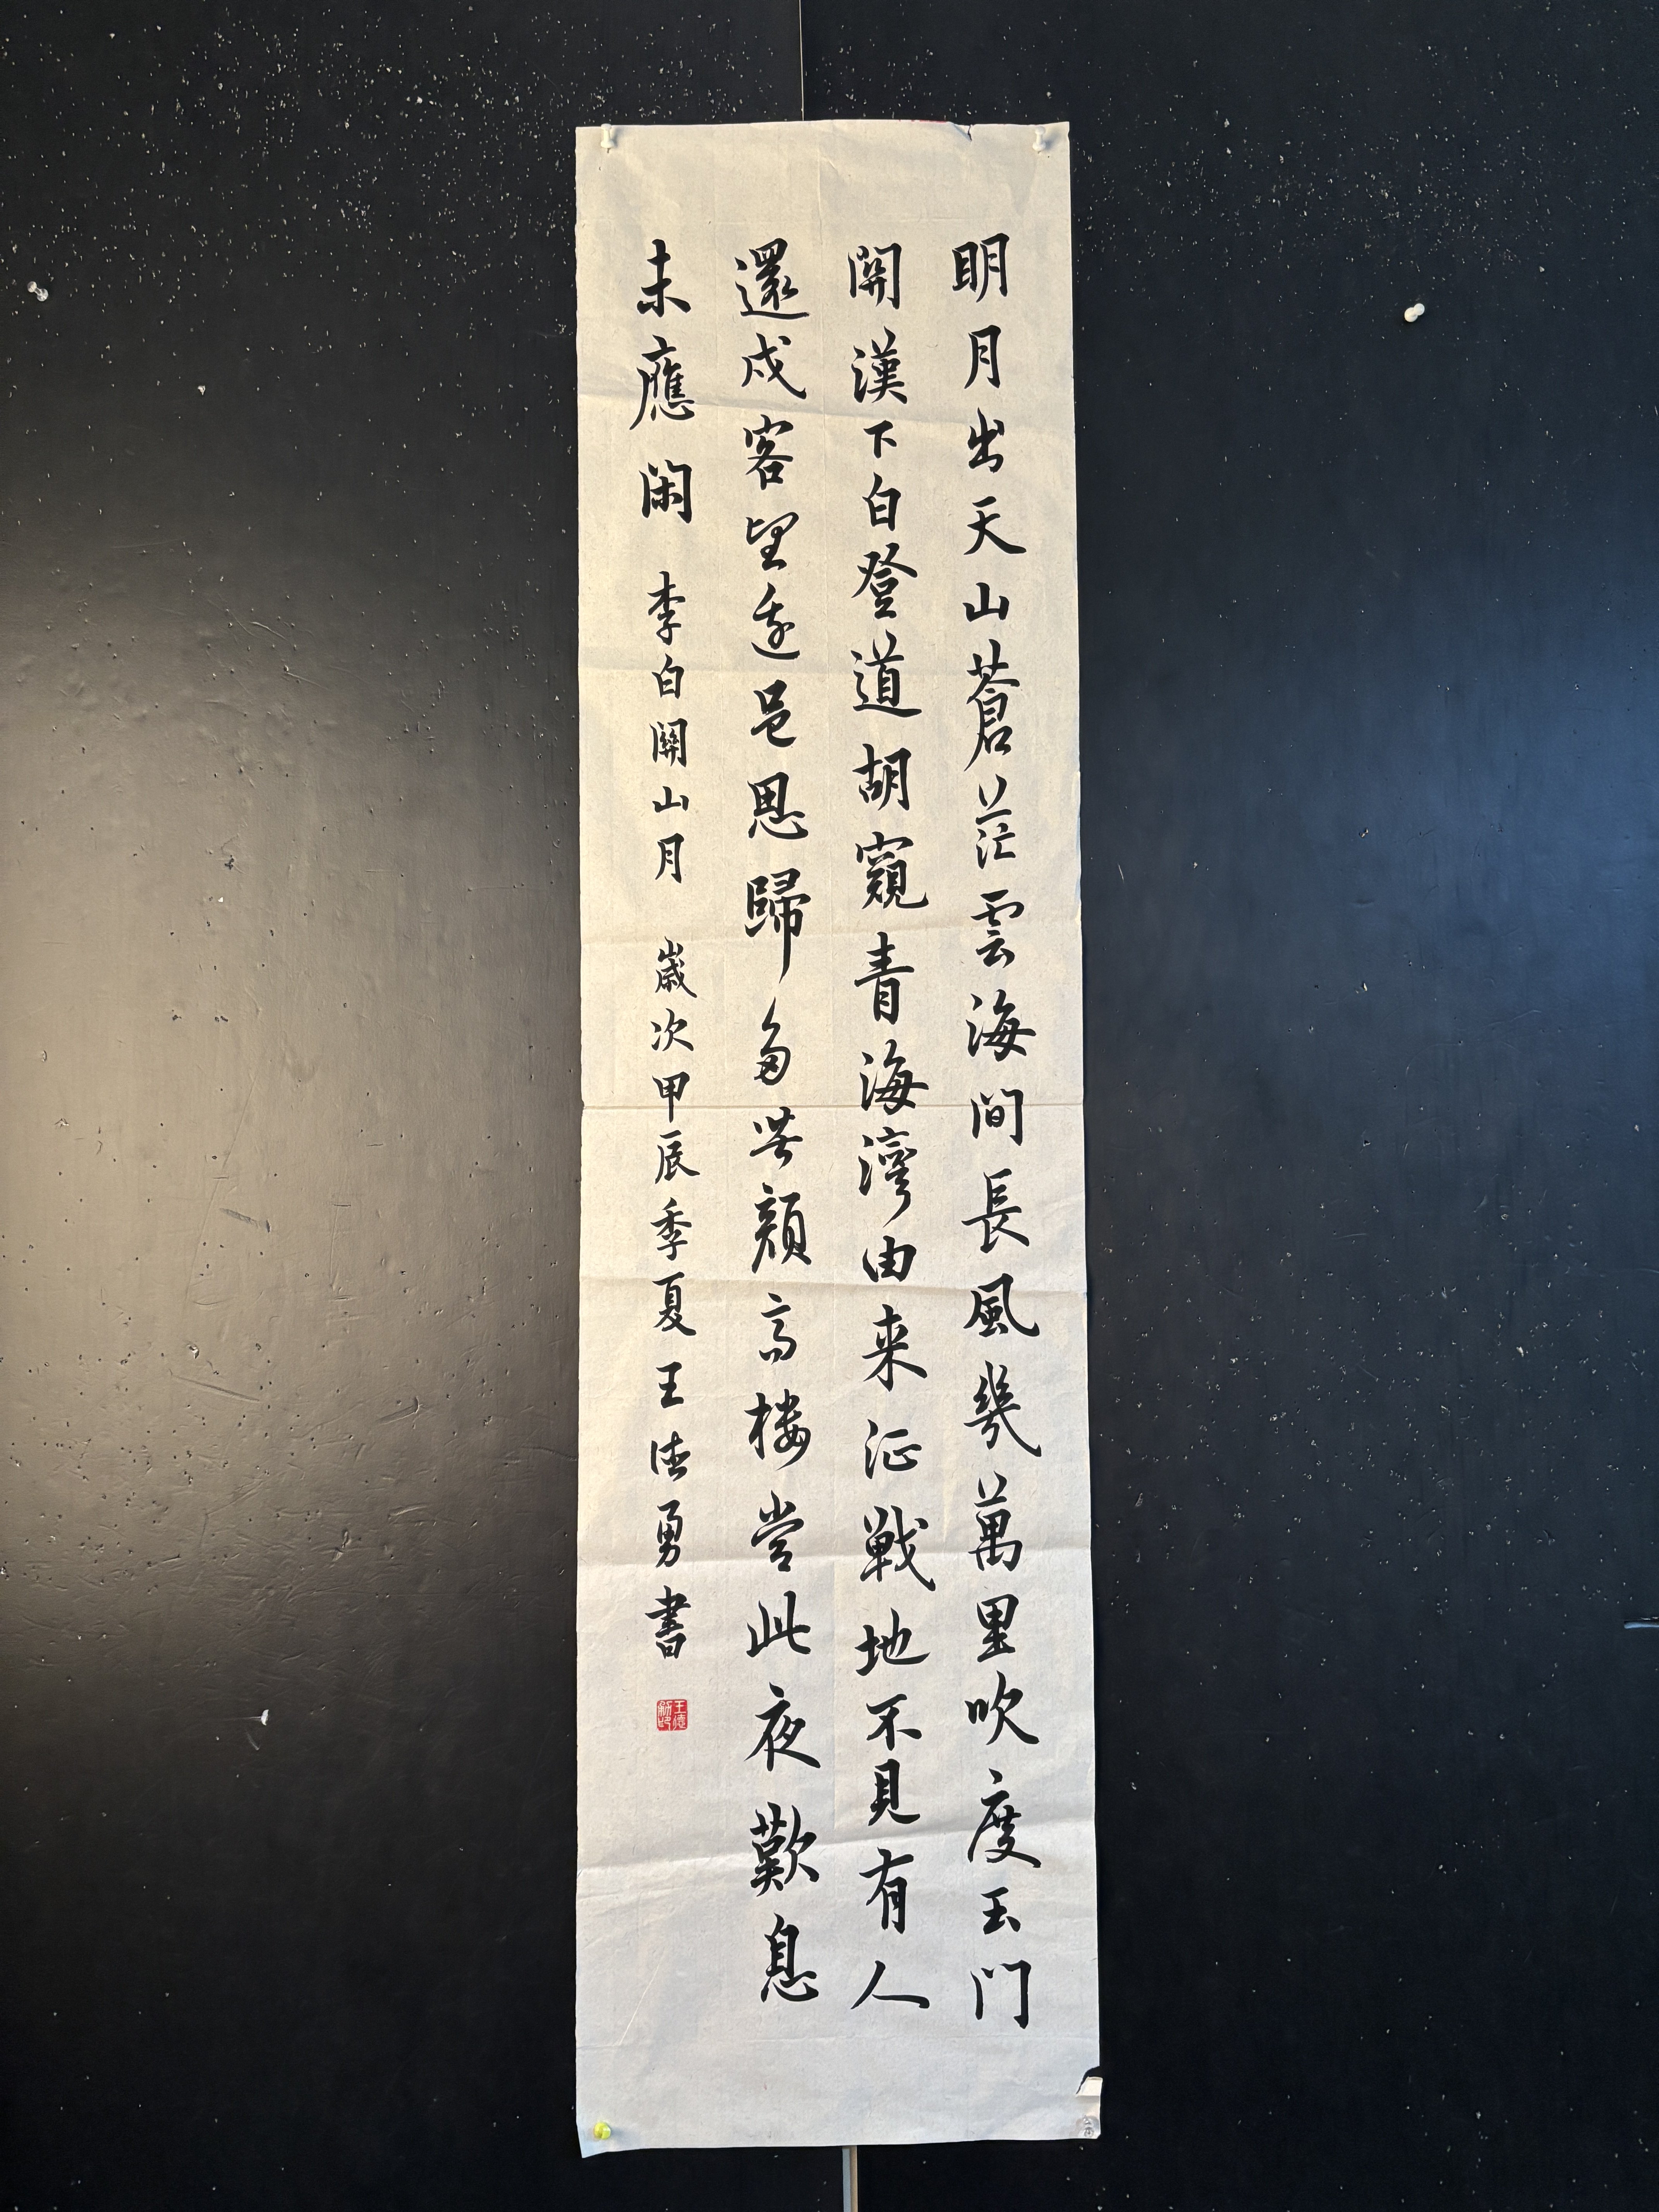 明月出天山蒼茫雲海間長風幾萬里吹度玉門
關漢下白登道胡窺青海灣由来征戰地不見有人
還戍客望邊邑思歸多苦顏高樓當此夜歎息
未應閑 李白關山月 歲次甲辰季夏王德勇書